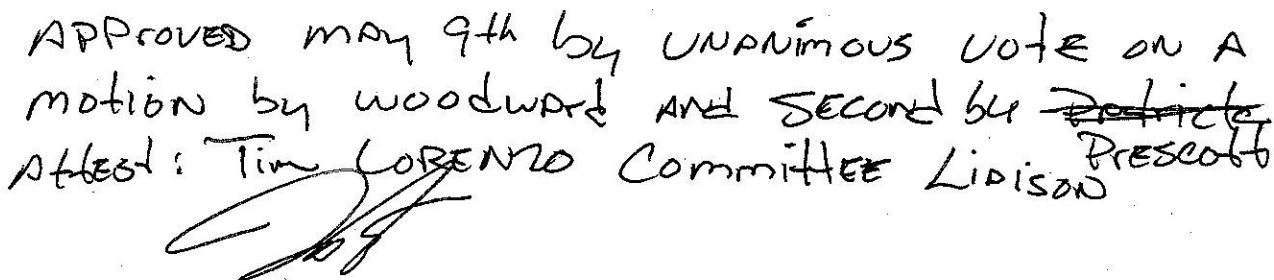 APPROVED MAY 9th by UNANIMOUS VOTE ON A
MOTION by WOODWARD AND SECOND by
Prescott
Attest: Tim LORENZO Committee Liaison